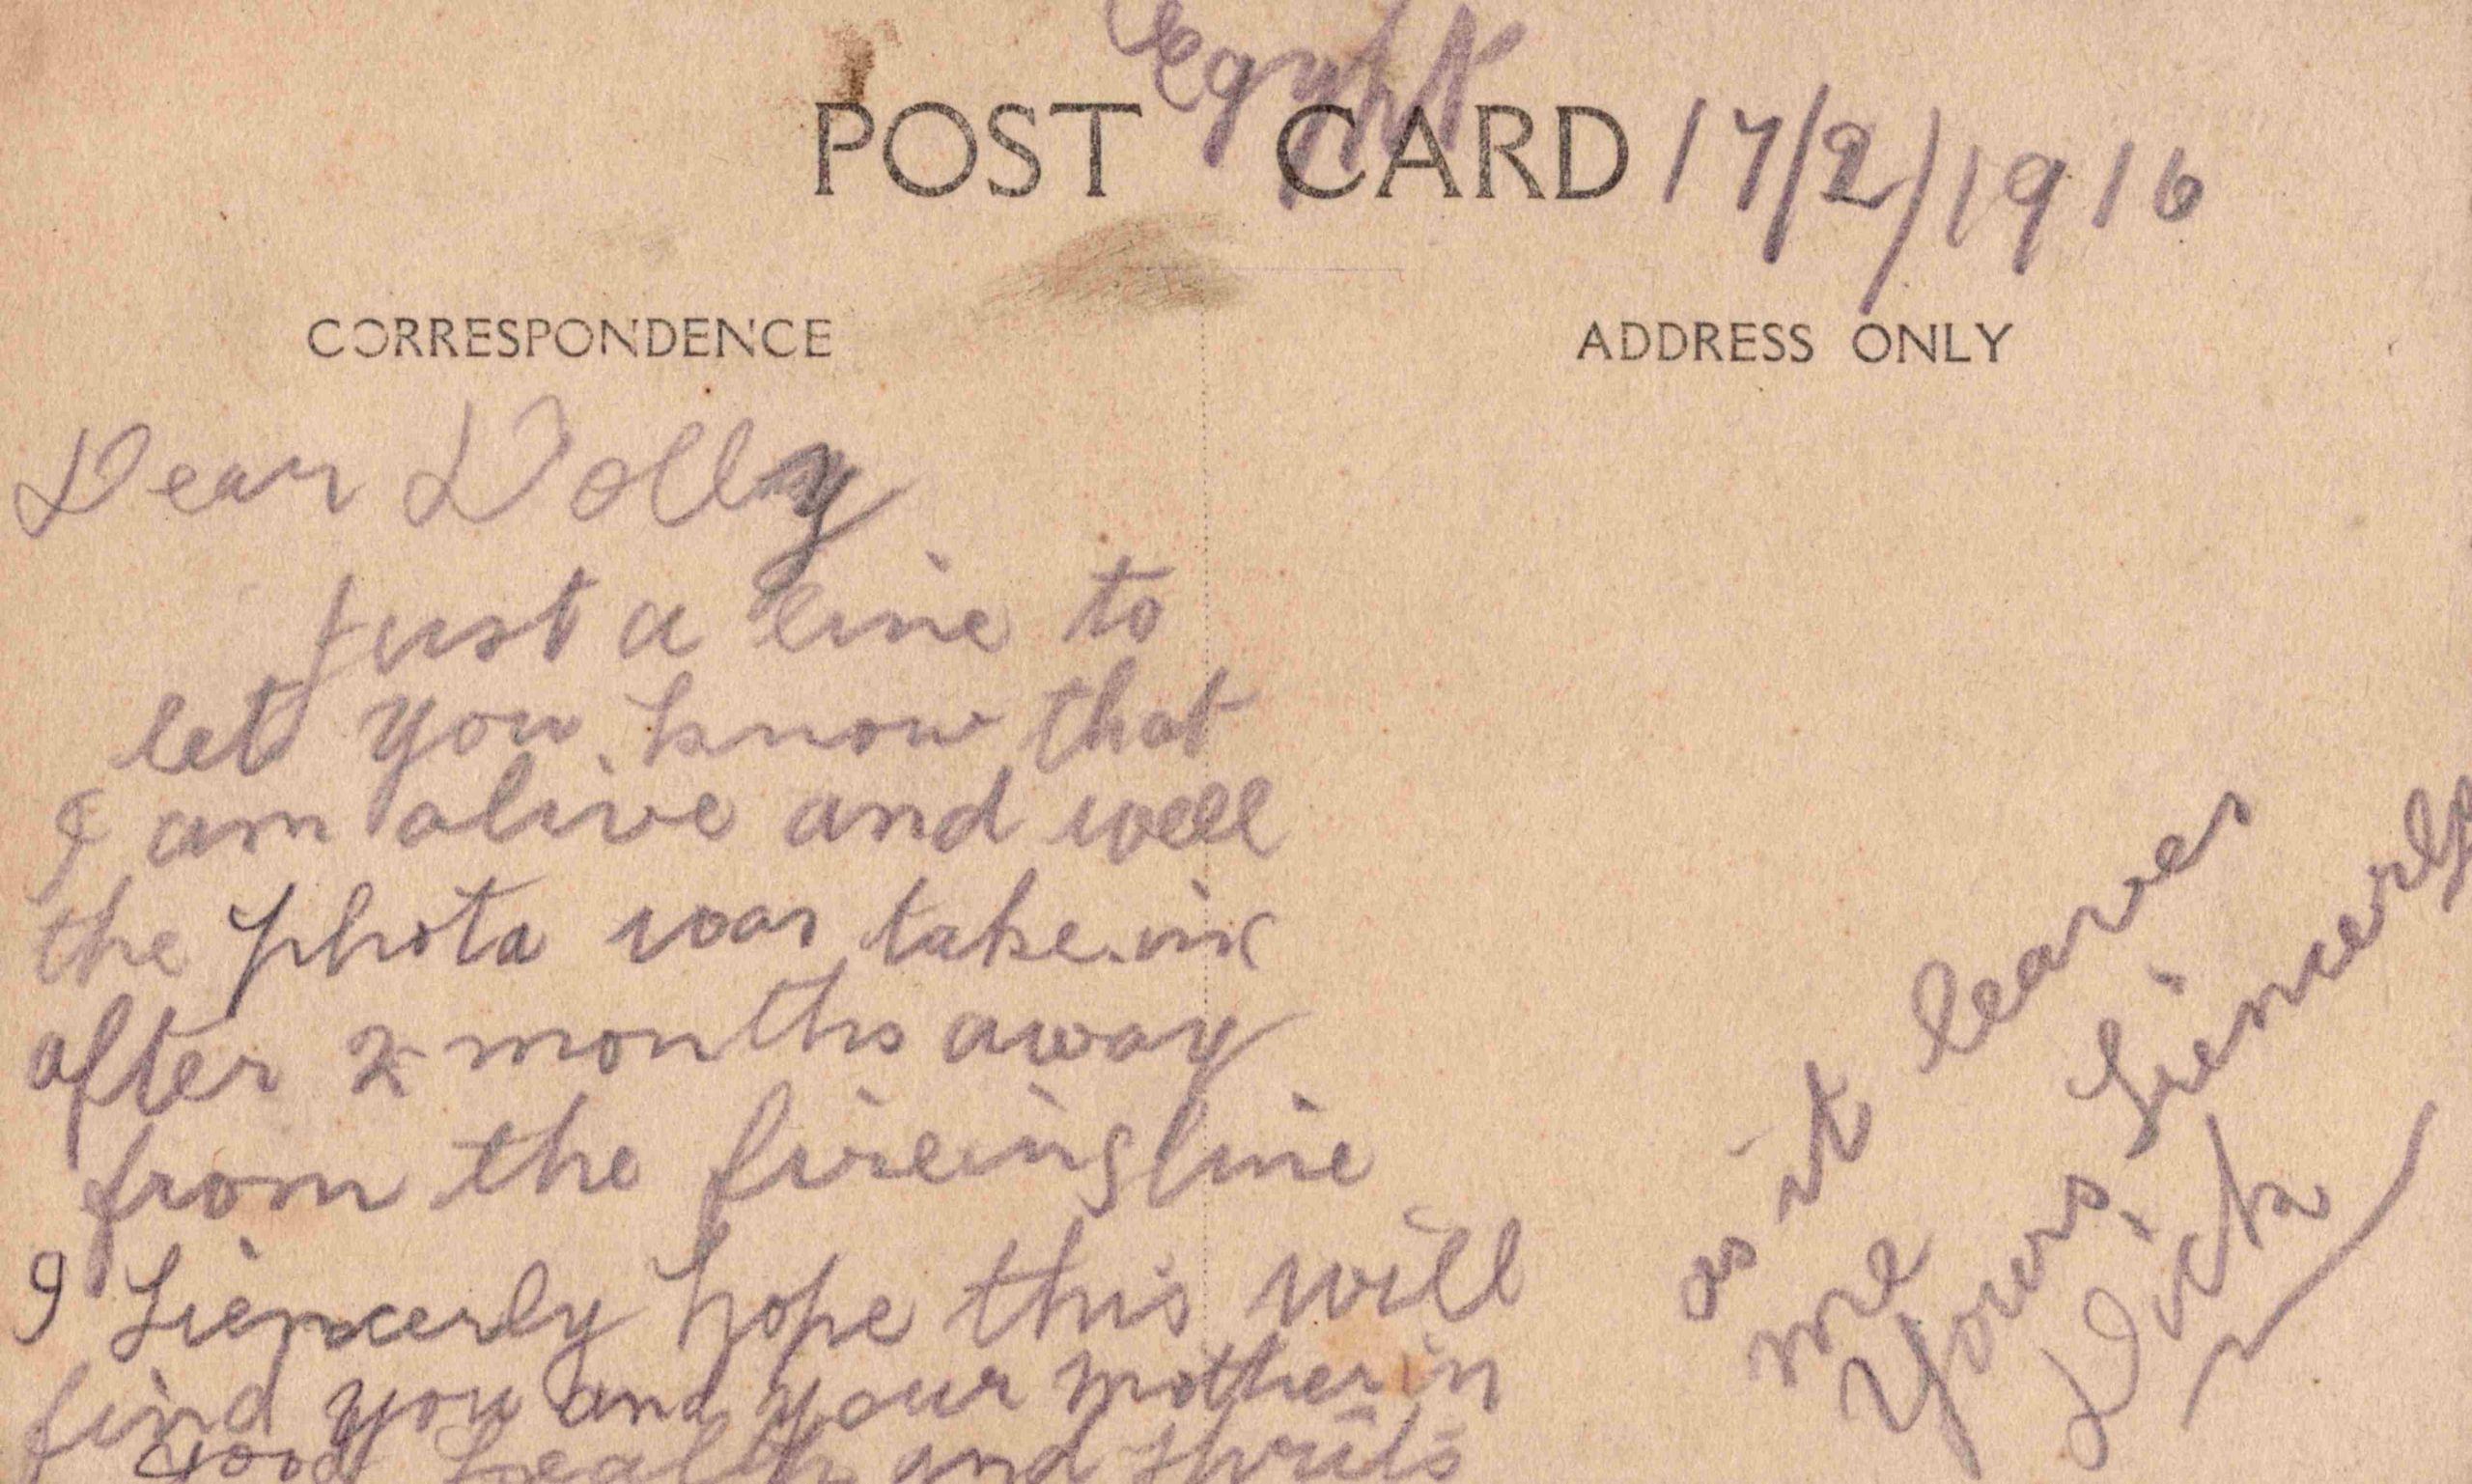 Egypt
POST CARD 17/2/1916
CORRESPONDENCE
ADDRESS ONLY
Dear Dolly
just a line to
let you know that
I am alive and well
the photo was take
after 2 months away
from the fireing line
I Siencerly hope this will
find you and your mother in
Good health and spirits
as it leaves
me
Yours Siencerly
Dick